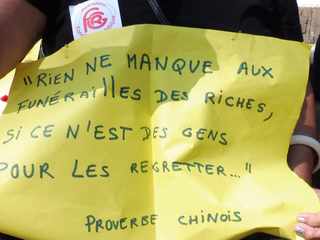 "RIEN NE MANQUE AUX
FUNÉRAILLES DES RICHES,
SI CE N'EST DES GENS
POUR LES REGRETTER..."
PROVERBE CHINOIS